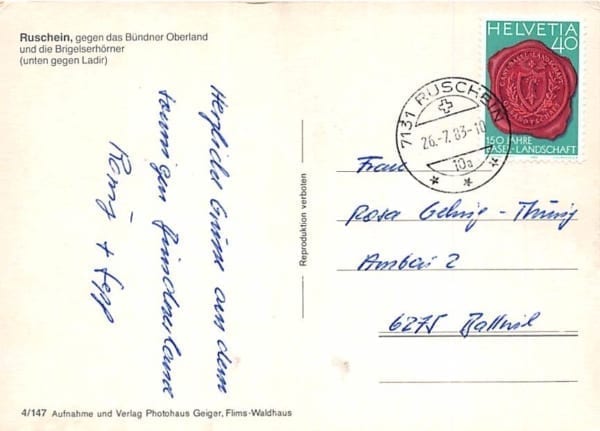 Ruschein, gegen das Bündner Oberland
und die Brigelserhörner
(unten gegen Ladir)
Herzliche Grüsse aus dem
sonnigen Bündnerland
+ Sepp
Reproduktion verboten
4/147 Aufnahme und Verlag Photohaus Geiger, Flims-Waldhaus
HELVETIA
40
150 JAHRE
BASEL-LANDSCHAFT
7131 RUSCHEIN
26.-7.83-10
10a
Frau
Rosa Gehrig - Thürig
Ambar 2
6275 Ballwil